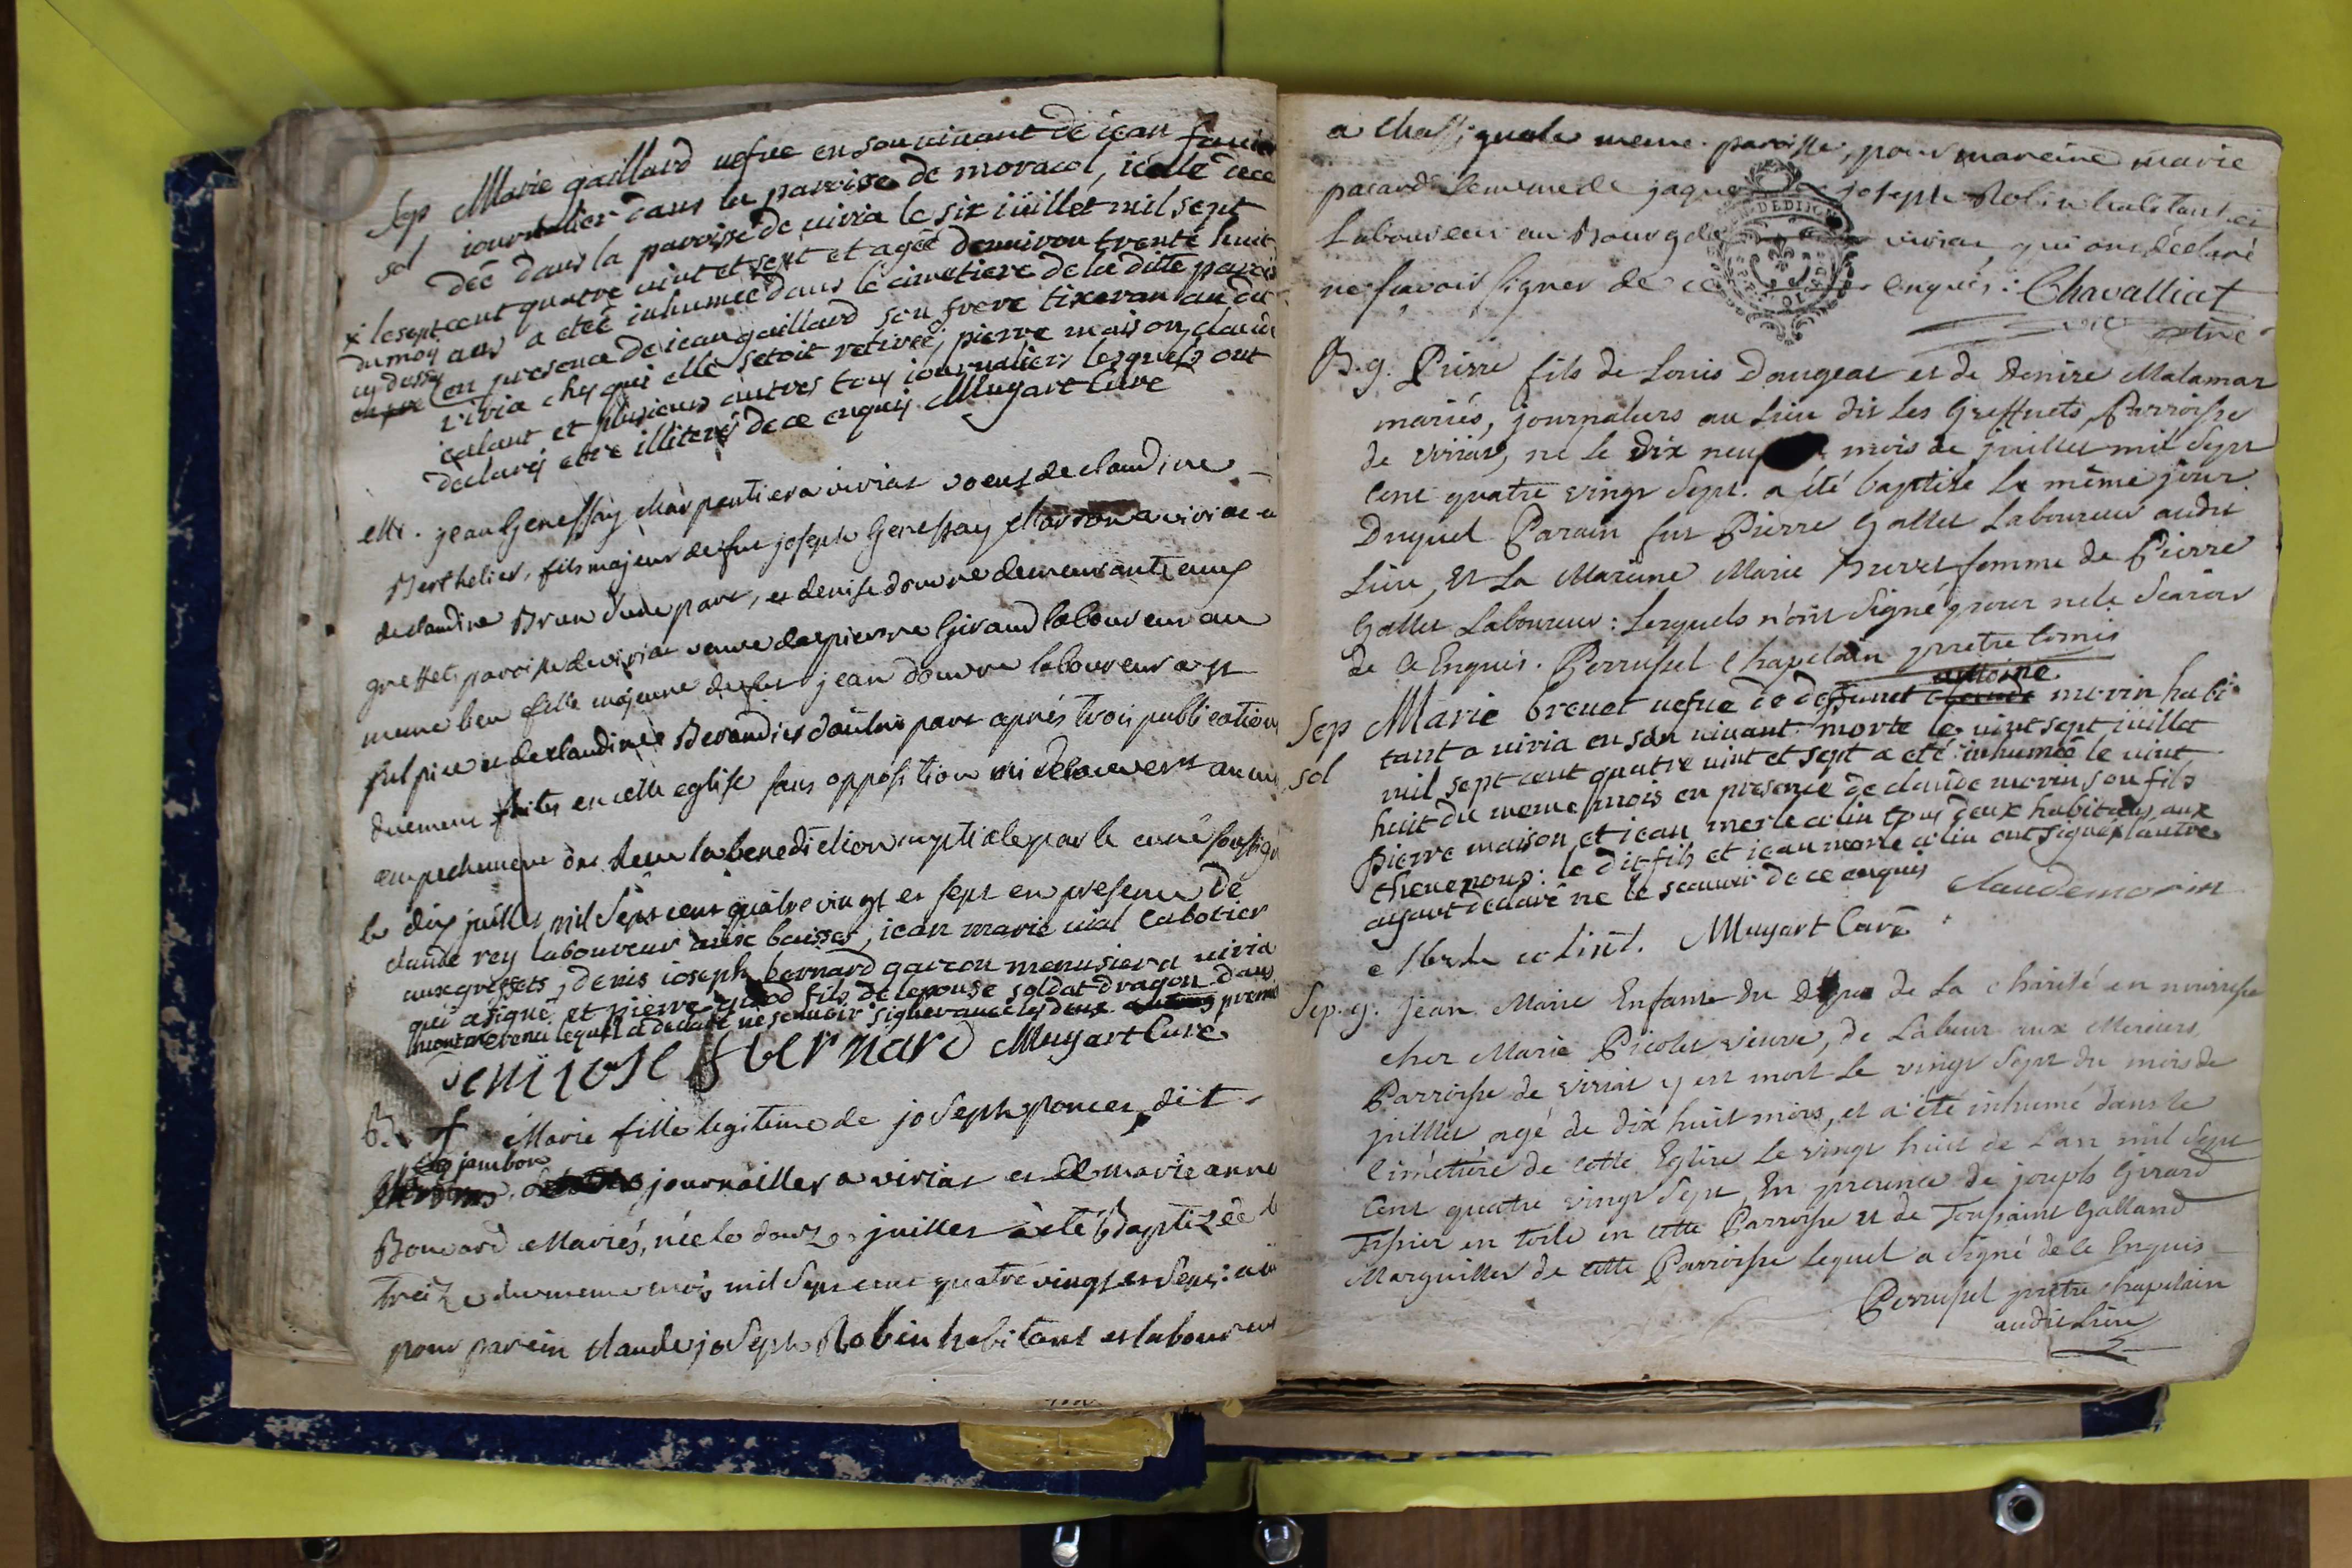 Sep Marie gaillard uefue en son uiuant de iean
sol iournalier dans la paroisse de moracol, icelle dece
dée dans la paroisse de uiuia le six iuillet mil sept
x le sept cent quatre uint et sept et agée denuiron trente huit
du moy ans a eteé inhumeé dans le cimetiere de la ditte paroi
cy dessu en presence de iean gaillard son frere tixeran au du
uiuia chez qui elle setoit retireé, pierre maison, claude
icelant et plusieurs autres tous iournaliers lesquels ont
declarés etre illiterés de ce enquis Mugart Curé
M. jean Genessay Charpentier a viviat voeuf de claudine
Berthelier, fils majeur de feu joseph Genessay Masson a viviac
de claudine Brun d'une part, et denise douvre demeurante aux
greffet paroisse de viviat veuve de pierre Giraud laboureur au
meme lieu fille majeure de feu jean douvre laboureur a st
sulpice et de claudine Berandier d'autre part aprés trois publications
duement faites en cette eglise sans opposition ni decouvert aucun
empechement ont recu la benediction nuptiale par le curé soussigné
le dix juillet mil sept cent quatre vingt et sept en presence de
claude rey laboureur aux baisses, iean marie uial cabotier
aux greffets, denis ioseph bernard garcon menusier a uiuia
qui a signé et pierre giraud fils de lepouse soldat dragon dans
lequel a declaré ne scauoir signer auec les deux premié
Denijose bernard Mugart Curé
B. f Marie fille legitime de joseph poncet, dit
jambon
journailler a viviat et de marie anne
Bouvard Mariés, née le douze juillet a été Baptizée le
treize du meme mois mil sept cent quatre vingt et sept: a eu
pour parein claude joseph Robin habitant et laboureur
a Chassignole meme paroisse, pour mareine marie
pacard femme de jaques joseph Robin habitant et
Laboureur au Bourg de viviat, qui ont déclaré
ne scavoir signer de ce enquis: Chavalliat
vic
B. g. Pierre fils de Louis Dangeat et de Denise Malamar
mariés, journaliers au lieu dit les Greffuets, Parroisse
de Viviat, né le dix neuf mois de juillet mil sept
cent quatre vingt sept. a été baptisé le même jour
Duquel Parain fut Pierre Gallet Laboureur audit
lieu, et La Maraine Marie Buret femme de Pierre
Gallet Laboureur: Lesquels n'ont signé pour ne le Scavoir
de ce Enquis. Perrussel Chapelain pretre Comis
antoine
Sep Marie breuet uefue de deffunct claude morin habi
sol tant a uiuia en son uiuant. morte le uint sept iuillet
mil sept cent quatre uint et sept a eté inhumeé le uint
huit du meme mois en presence de claude morin son fils
pierre maison et iean merle colin tous deux habitans aux
chenepous: le dit fils et iean merle colin ont signés l'autre
ayant declaré ne le scauoir de ce enquis claude morin
Mugart Curé
Sep. g. Jean Marie Enfant du Dépos de La Charité en nourrisse
cher Marie Picolet veuve, de Labeur aux Merciers,
Parroisse de Viviat y est mort le vingt sept du mois de
juillet agé de dix huit mois, et a été inhumé dans le
Cimétiére de cette Eglise le vingt huit de L'an mil Sept
Cent quatre vingt Sept, En presence de joseph Girard
Tissier en toile en cette Parroisse et de Toussaint Galland
Marguillier de cette Parroisse lequel a Signé de ce Enquis
Perrussel pretre chapelain
audit Lieu